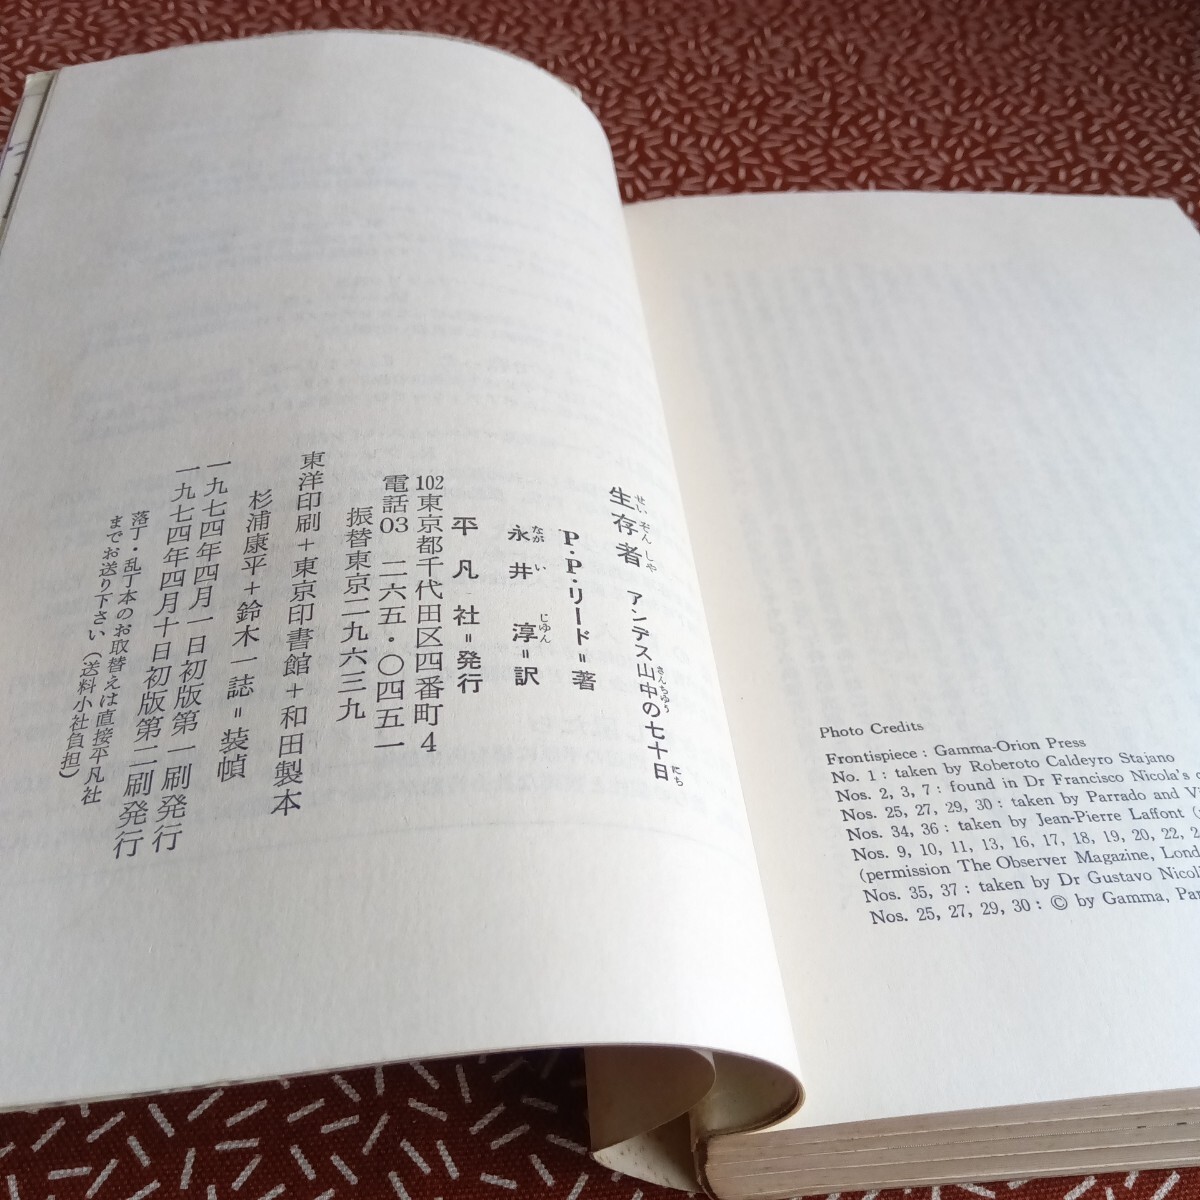 生存者 アンデス山中の七十日
せいぞんしや さんちゆう にち
P・P・リード＝著
永井 淳＝訳
ながい じゆん
平凡社＝発行
102東京都千代田区四番町4
電話03 二六五・〇四五一
振替東京二九六三九
東洋印刷＋東京印書館＋和田製本
杉浦康平＋鈴木一誌＝装幀
一九七四年四月一日初版第一刷発行
一九七四年四月十日初版第二刷発行
落丁・乱丁本のお取替えは直接平凡社
までお送り下さい（送料小社負担）
Photo Credits
Frontispiece : Gamma-Orion Press
No. 1 : taken by Roberoto Caldeyro Stajano
Nos. 2, 3, 7 : found in Dr Francisco Nicola's
Nos. 25, 27, 29, 30 : taken by Parrado and
Nos. 34, 36 : taken by Jean-Pierre Laffont
Nos. 9, 10, 11, 13, 16, 17, 18, 19, 20, 22,
(permission The Observer Magazine,
Nos. 35, 37 : taken by Dr Gustavo
Nos. 25, 27, 29, 30 : © by Gamma,